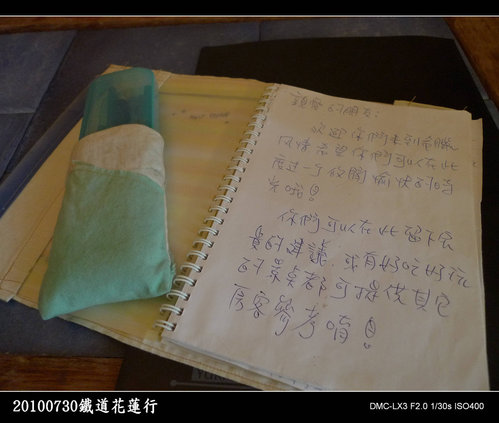 親愛的朋友:
歡迎你們來到希臘
風情希望你們可以在此
度過一個悠閒愉快的時
光哦!
你們可以在此留下寶
貴的建議,或有好吃好玩
的景點都可提供其它
房客參考唷!
20100730鐵道花蓮行
DMC-LX3 F2.0 1/30s ISO400